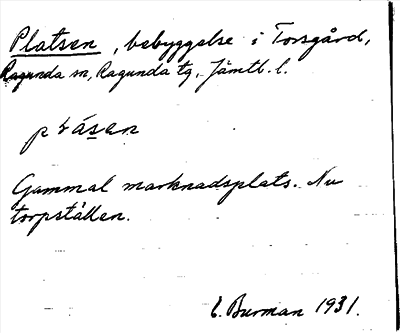 Platsen, bebyggelse i Torsgård,
Ragunda sn, Ragunda tg, Jämtl. l.
Gammal marknadsplats. Nu
torpställen.
E. Burman 1931.